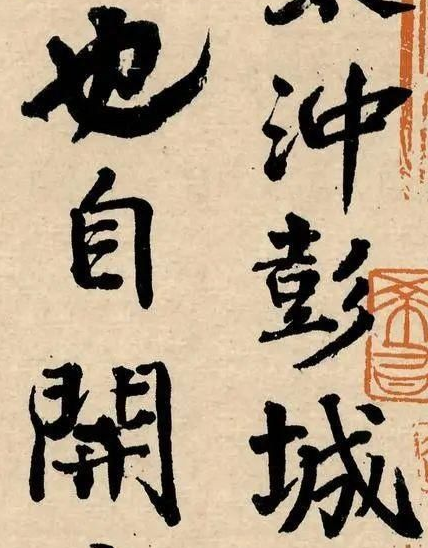 沖彭城
也自開